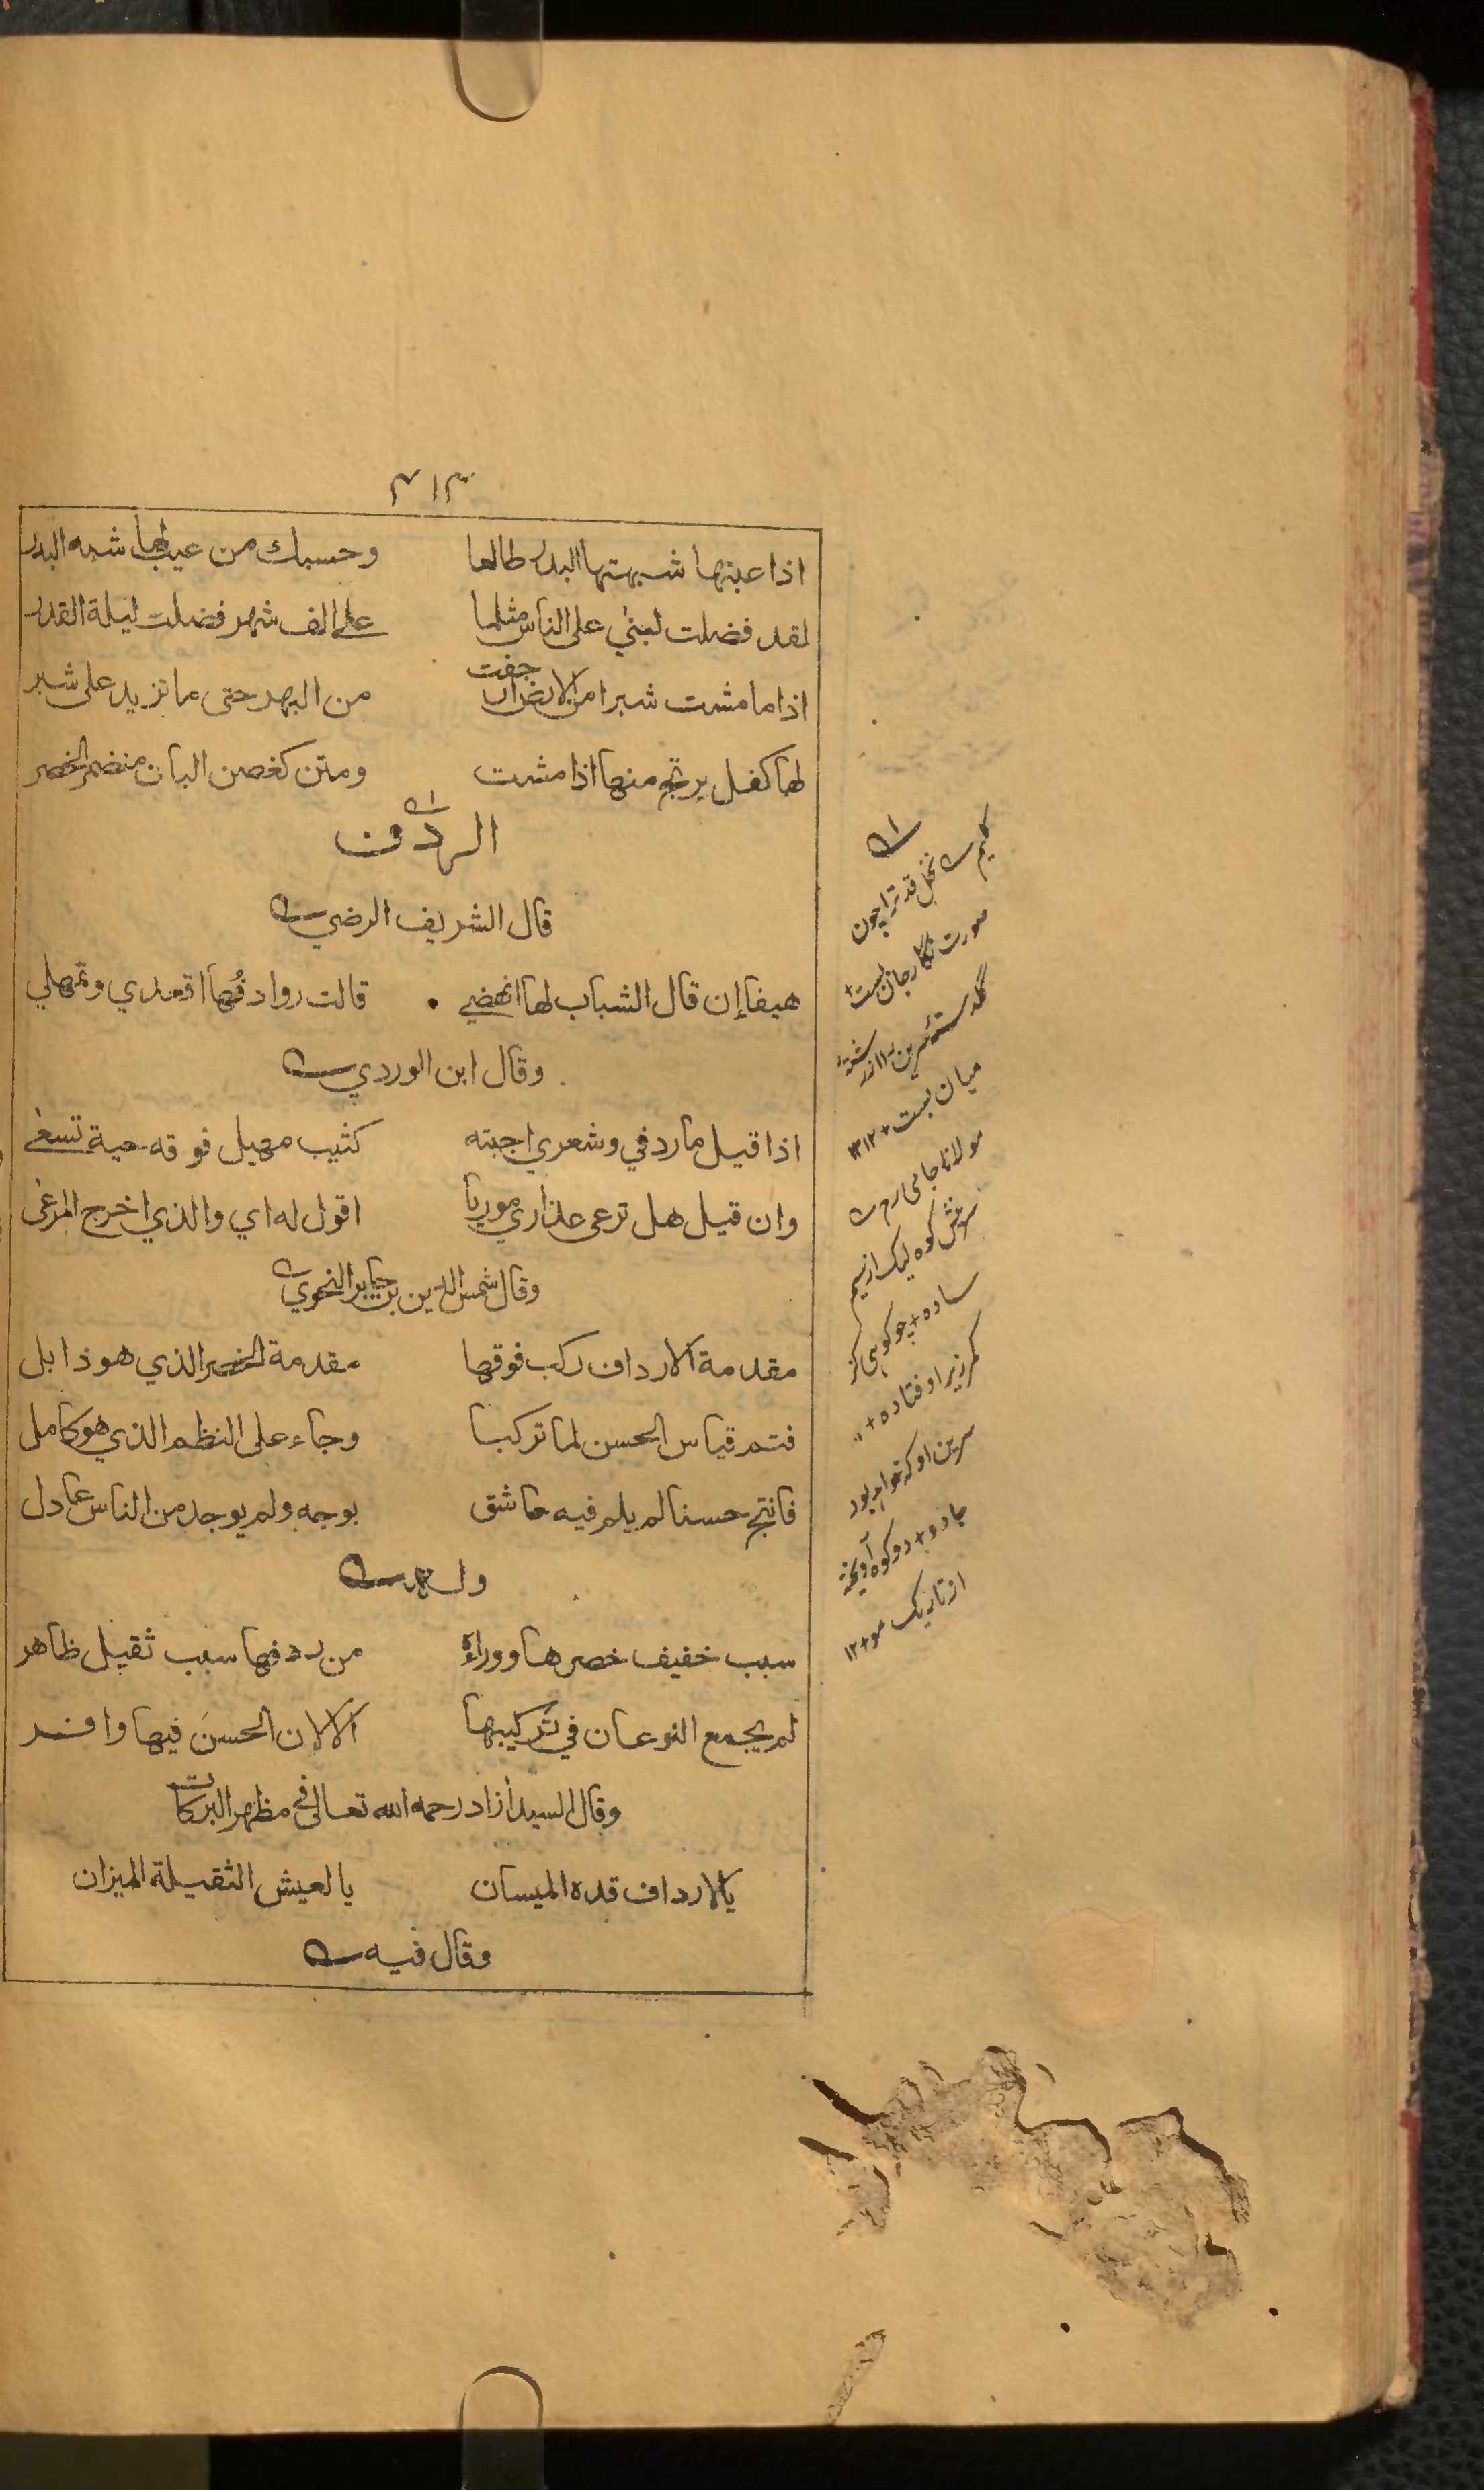 ٣١٣
اذا عبتها شبهتها البدر طالعا وحسبك من عيب لها شبه البدر
لقد فضلت لبنى على الناس مثلما على الف شهر فضلت ليلة القدر
اذا ما مشت شبرا من الارض ارجفت من البهر حتى ما تزيد على شبر
لها كفل يرتج منها اذا مشت ومتن كغصن البان منضمر الخصر
الردف
قال الشريف الرضي
هيفا إن قال الشباب لها انهضي قالت روادفُها اقعدي وتمهلي
وقال ابن الوردي
اذا قيل ما ردفي وشعري اجبته كثيب مهيل فوقه حية تسعى
وان قيل هل ترعى عذاري موريا اقول له اي والذي اخرج المرعى
وقال شمس الدين بن جابر النحوي
مقدمة الارداف ركب فوقها مقدمة الخصر الذي هو ذابل
فتم قياس الحسن لما تركبا وجاء على النظم الذي هو كامل
فانتج حسنا لم يلم فيه عاشق بوجه ولم يوجد من الناس عادل
وله
سبب خفيف خصرها ووراؤه من ردفها سبب ثقيل ظاهر
لم يجمع النوعان في تركيبها الا لان الحسنَ فيها وافر
وقال السيد أزاد رحمه الله تعالى في مظهر البركات
يالارداف قده الميسان يا لعيش الثقيلة الميزان
وقال فيه
كليم
نخل قد ترا چون
صورت نگار جان بست
گلدسته سرين را از رشته
ميان بست ١٢
مولانا جامى رح
سرينش كوه ليك از سيم
ساده + چو كوهى كز
كمر زير اوفتاده +
سرين او كه خواهد بود
جادو + دو كوه آويخته
از تار يک مو + ١٢